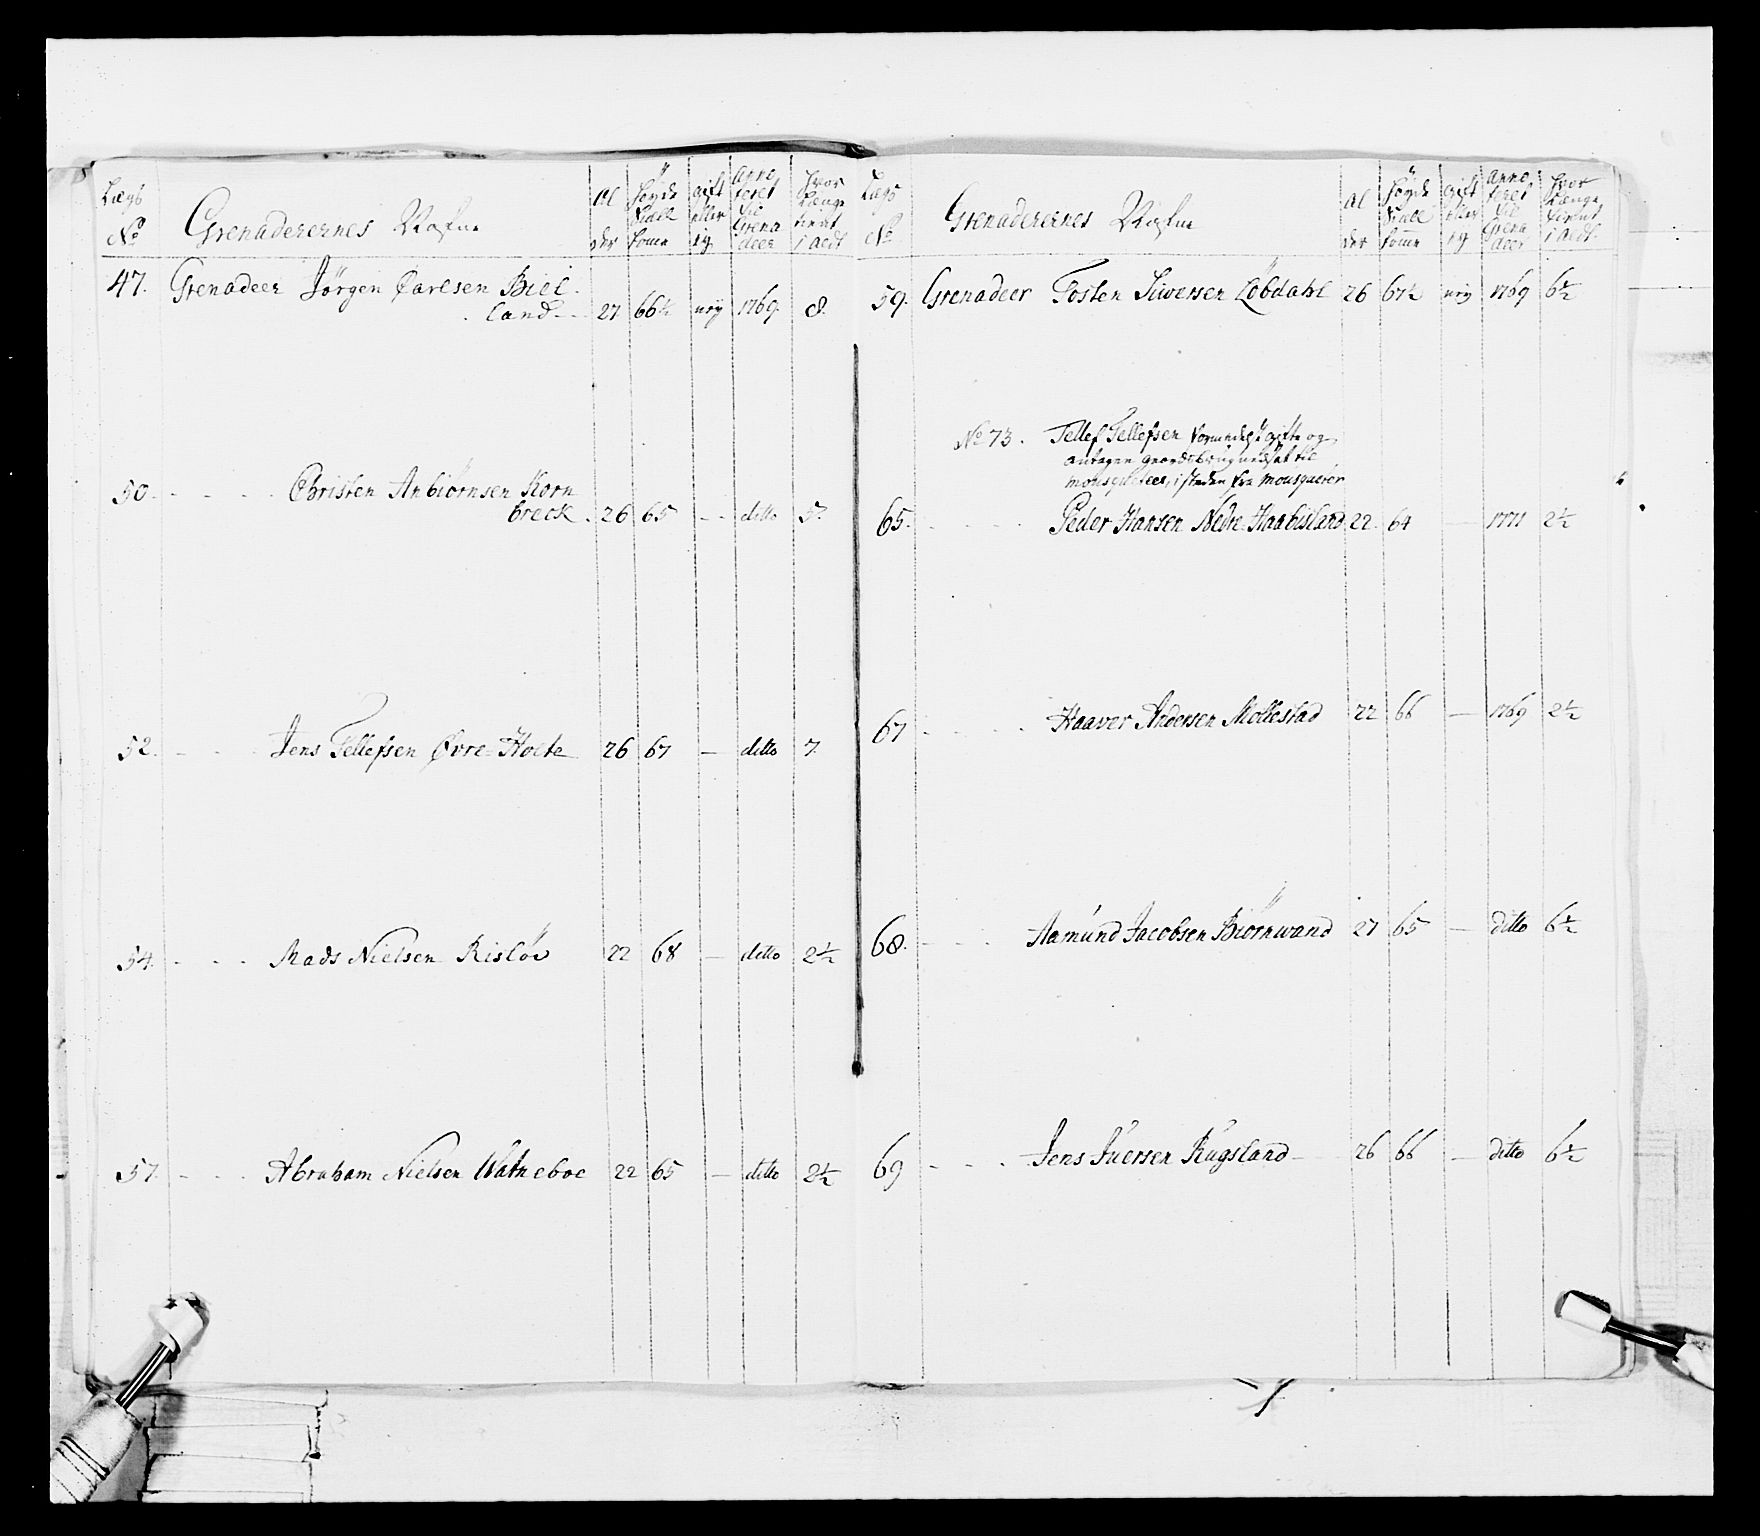 Lægs No Grenaderernes Nafne Al der Høyde Sall Somme gift eller ig Anno teret til Grena deer hvor Længe tient i aldt
47. Grenadeer Jörgen Carlsen Biel
land 27 66½ uig 1769. 8.
50. Christen Anbiörnsen Korn
breck. 26 65 - ditto 5.
52. Jens Tellefsen Øvre Holte 26 67 — ditto 7.
54. Mads Nielsen Rislöv 22 68 — ditto 2½
57. Abraham Nielsen Watneboe 22 65 — ditto 2½
Lægs No Grenaderernes Nafne Al der Høyde Sall Somme gift eller ig Anno teret til Grena deer hvor Længe tient i aldt.
59. Grenadeer Tosten Siwersen Löbdahl 26 67½ uig 1769 6½
No 73. Tellef Tellefsen formedelst gifte og
antagen gaardsbrug udsat til
mousqueteer, isteden fra mousqueter
65. Peder Hansen Nedre Haabisland 22 64 — 1771 2½
67 Haaver Andersen Mollestad 22 66 — 1769 2½
68. Aamund Jacobsen Biörnwand 27 65 — ditto 6½
69 Jens Juersen Rugsland 26 66 — ditto 6½